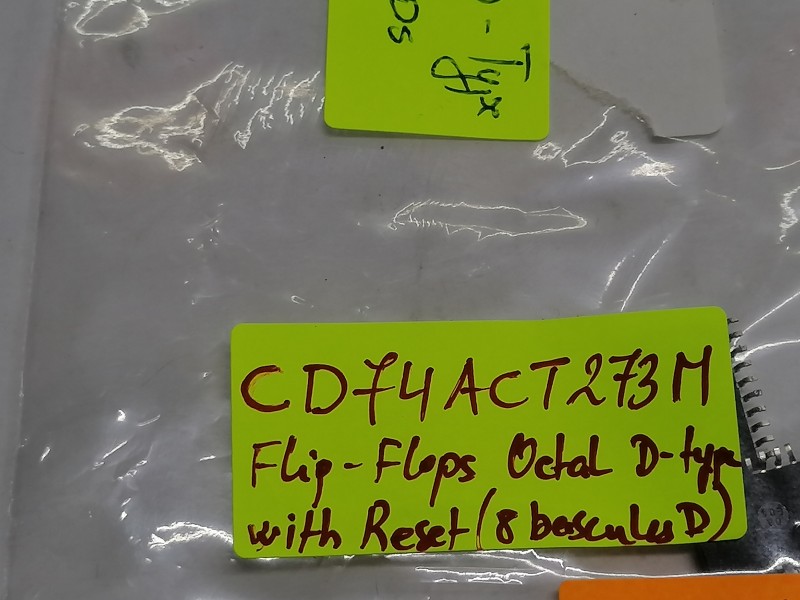 CD74ACT273M
Flip-Flops Octal D-type
with Reset (8 bascules D)